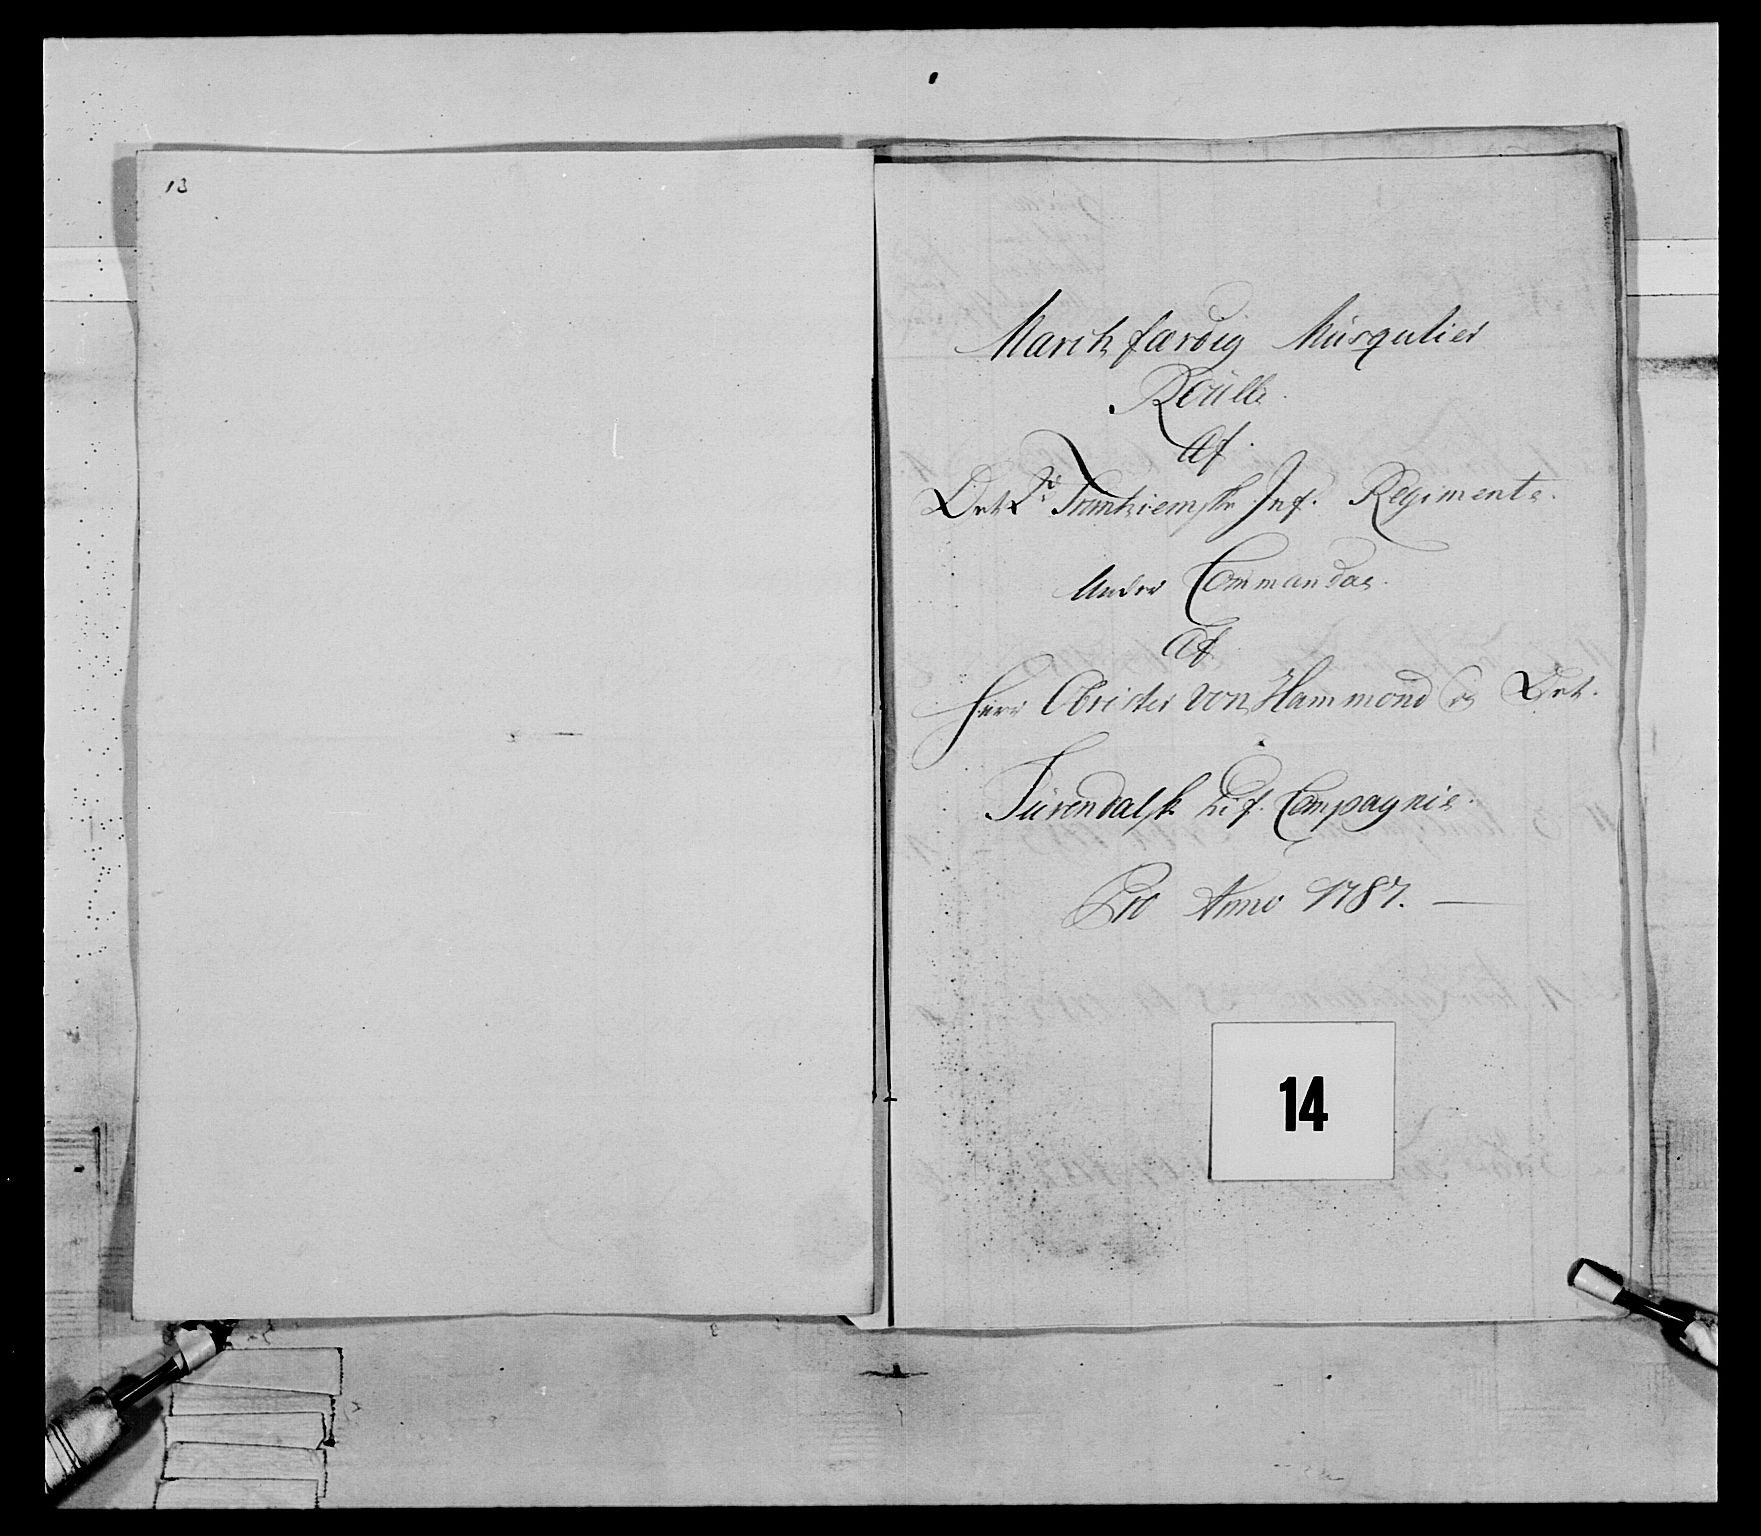 13
March færdig Musquetier
Roulle.
Af.
Det 2de Trondhiemske Inf. Regiments.
Under Commando.
Af
Herr Obrister von Hammond og Det.
Surendalsk Lif. Compagnie.
Pro Anno 1787. —
14